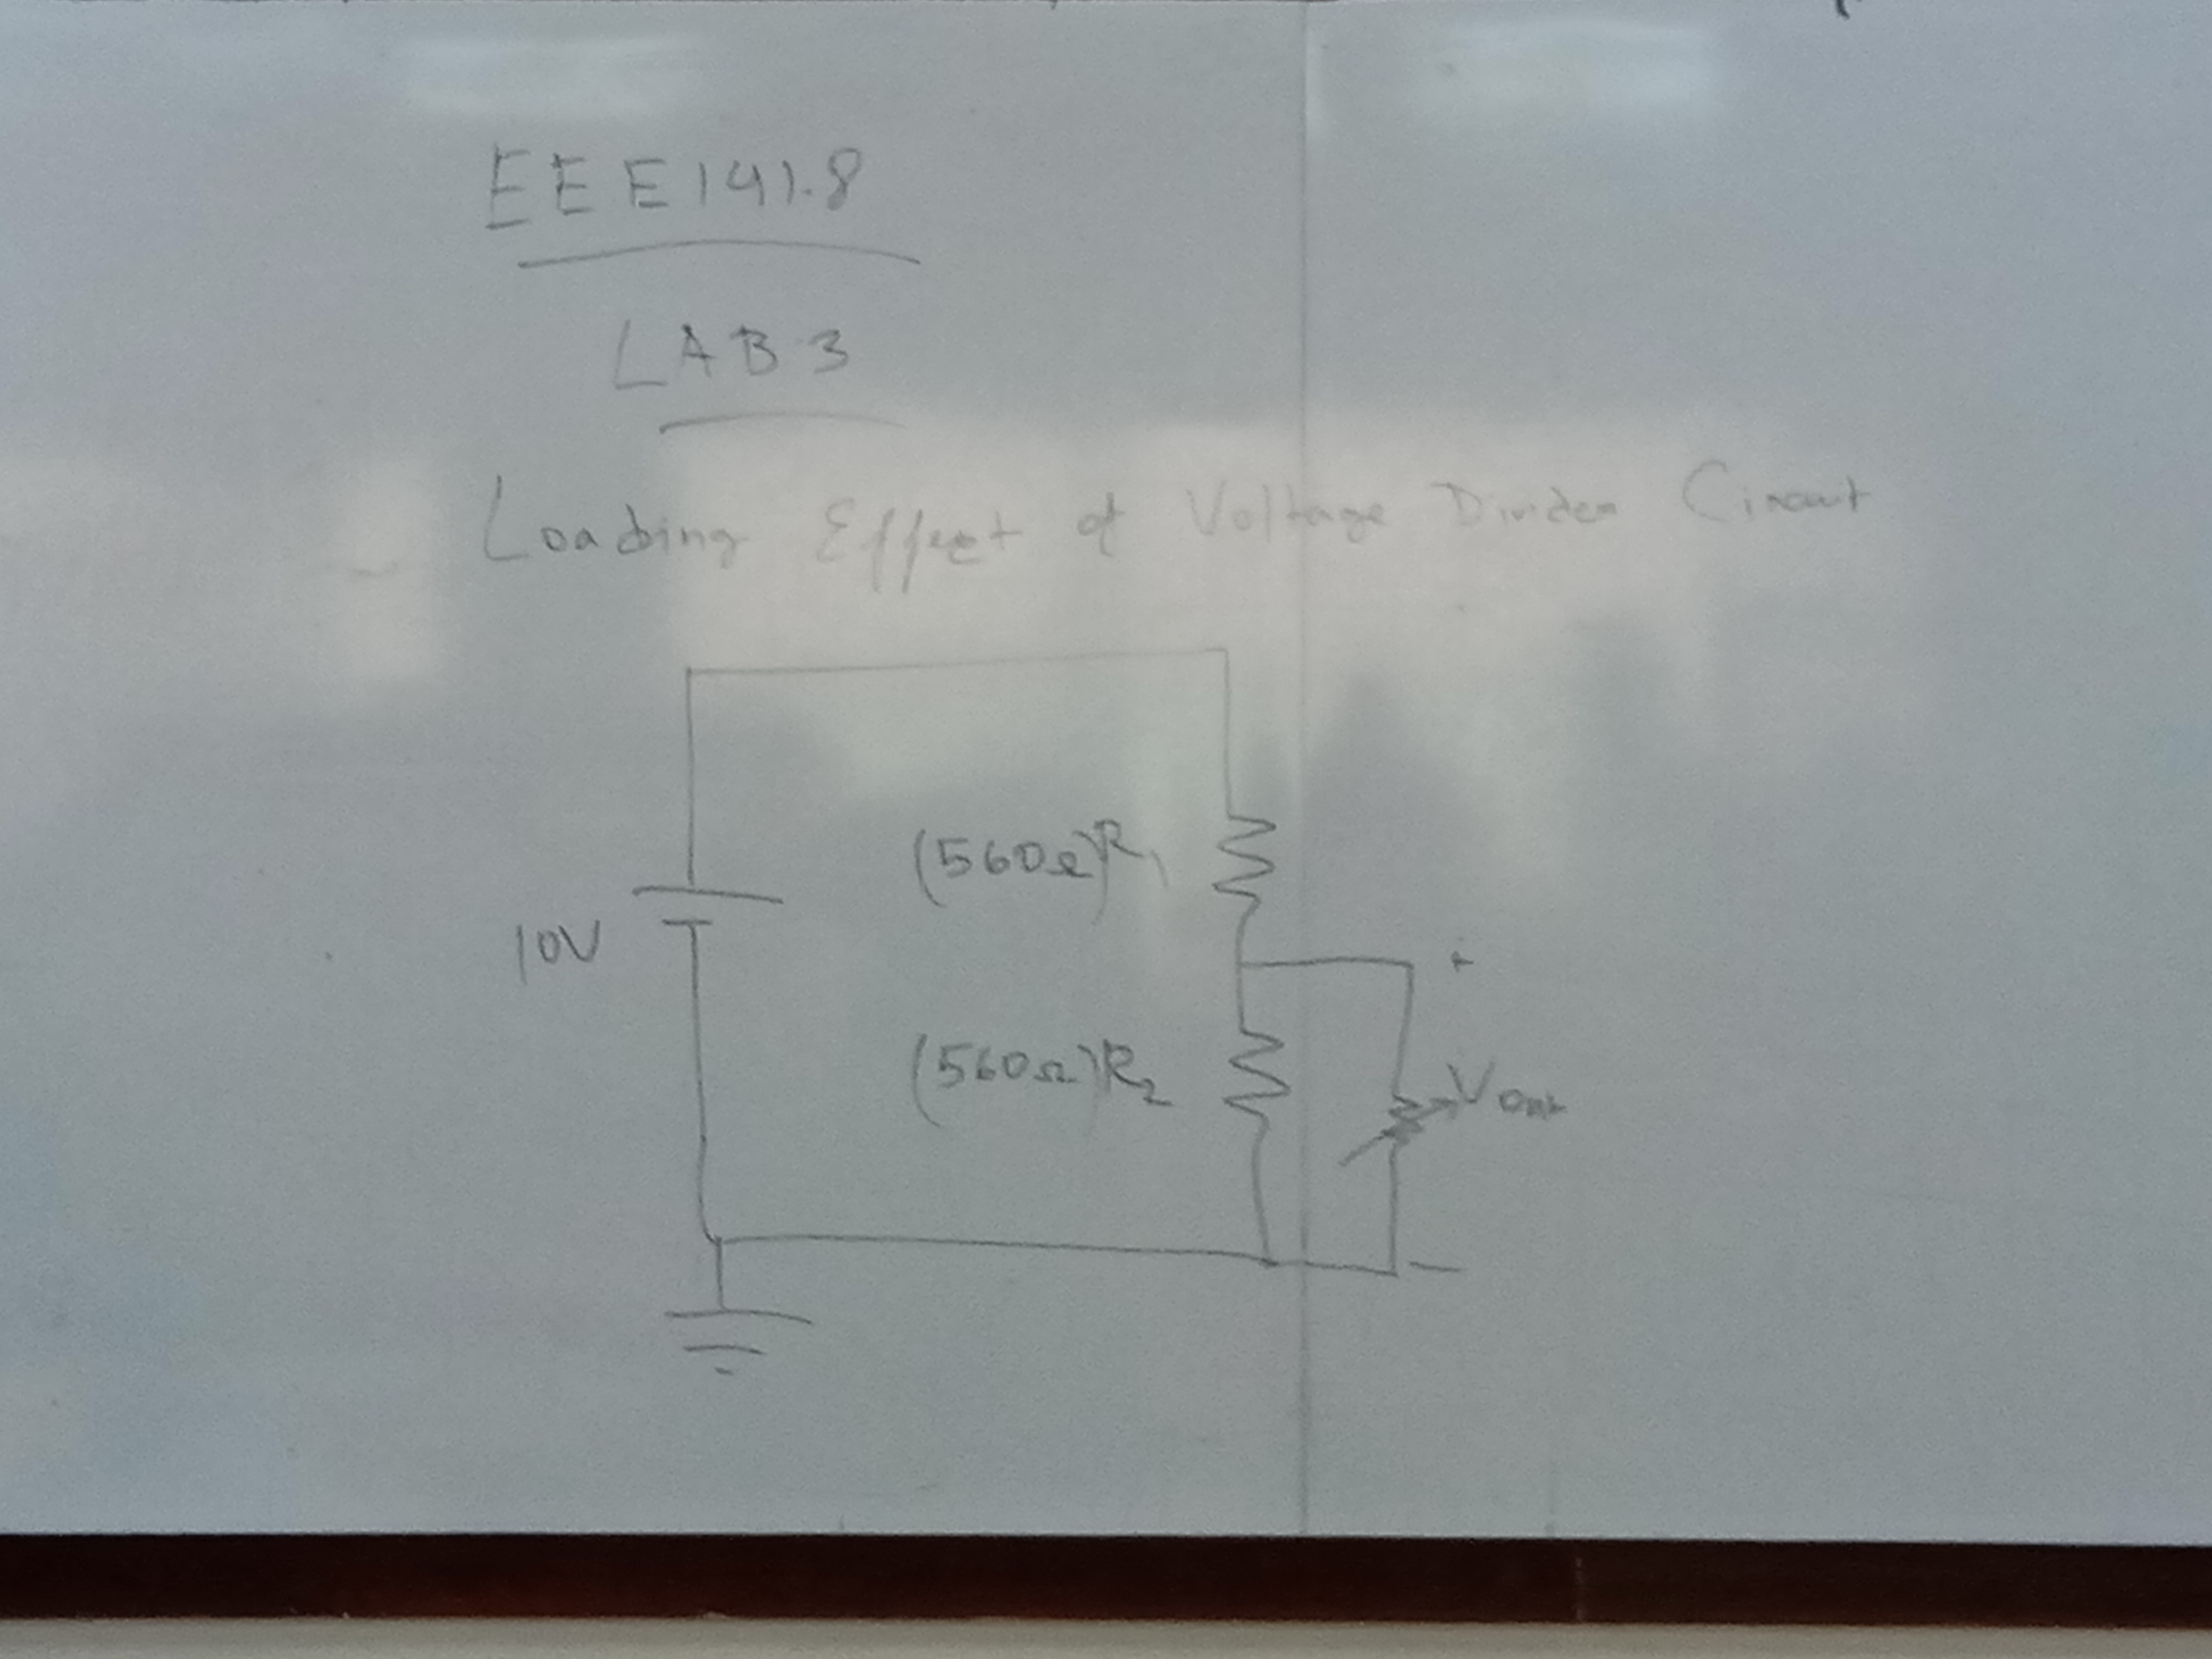 EEE141.8
LAB 3
Loading Effect of Voltage Divider Circuit
(560Ω) R1
10V
+
(560Ω) R2
Vout
-